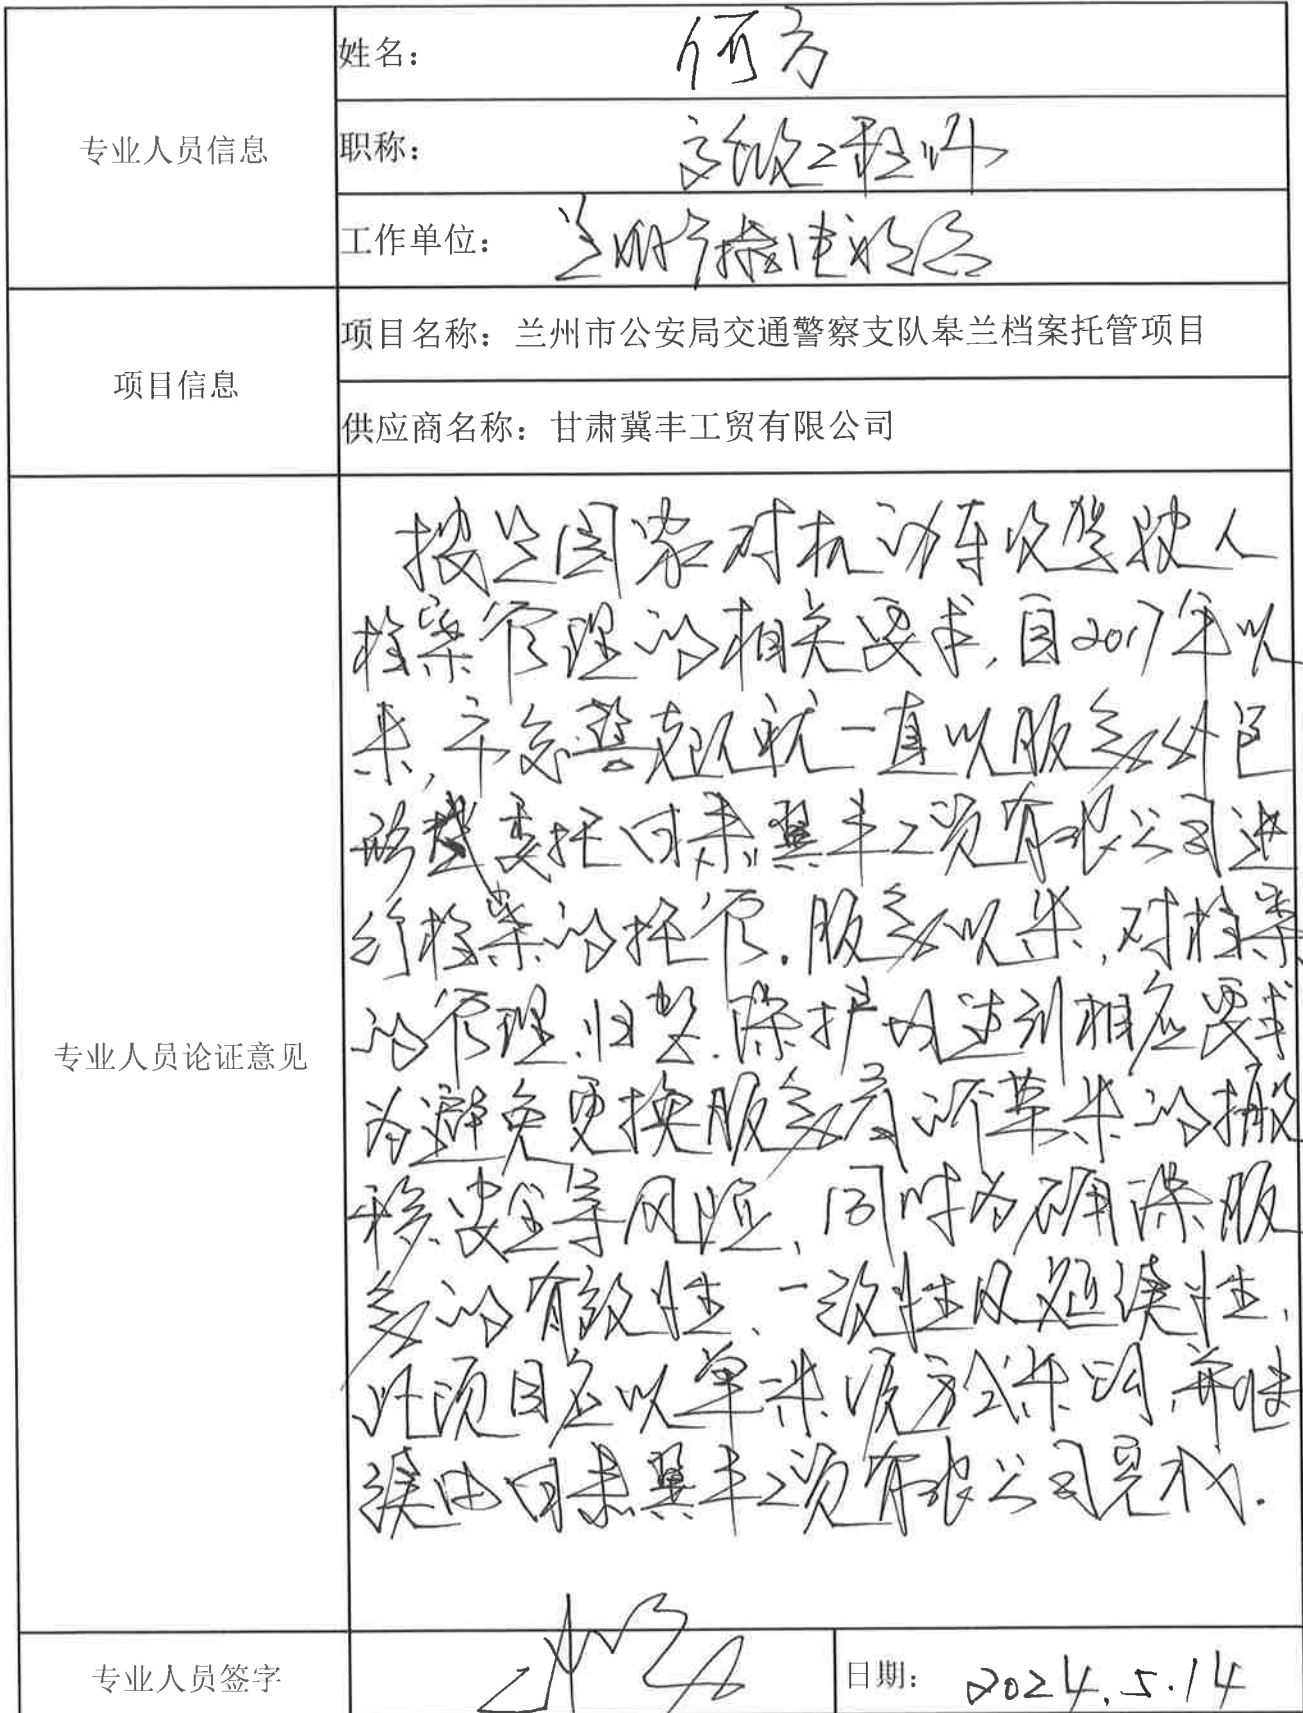 姓名： 何方
专业人员信息
职称： 高级工程师
工作单位： 兰州广播电视台
项目信息
项目名称：兰州市公安局交通警察支队皋兰档案托管项目
供应商名称：甘肃冀丰工贸有限公司
专业人员论证意见
按照国家对机动车及驾驶人
档案管理的相关要求,自2017年以
来,市交警支队就一直以服务外包
形式委托甘肃冀丰工贸有限公司进
行档案的托管.服务以来,对档案
的管理.归整.保护均达到相应要求
为避免更换服务商所带来的搬
移、安全等风险,同时为确保服
务的有效性、一致性及延续性,
此项目应以单一来源方式采购,并继
续由甘肃冀丰工贸有限公司实施.
专业人员签字
日期： 2024.5.14